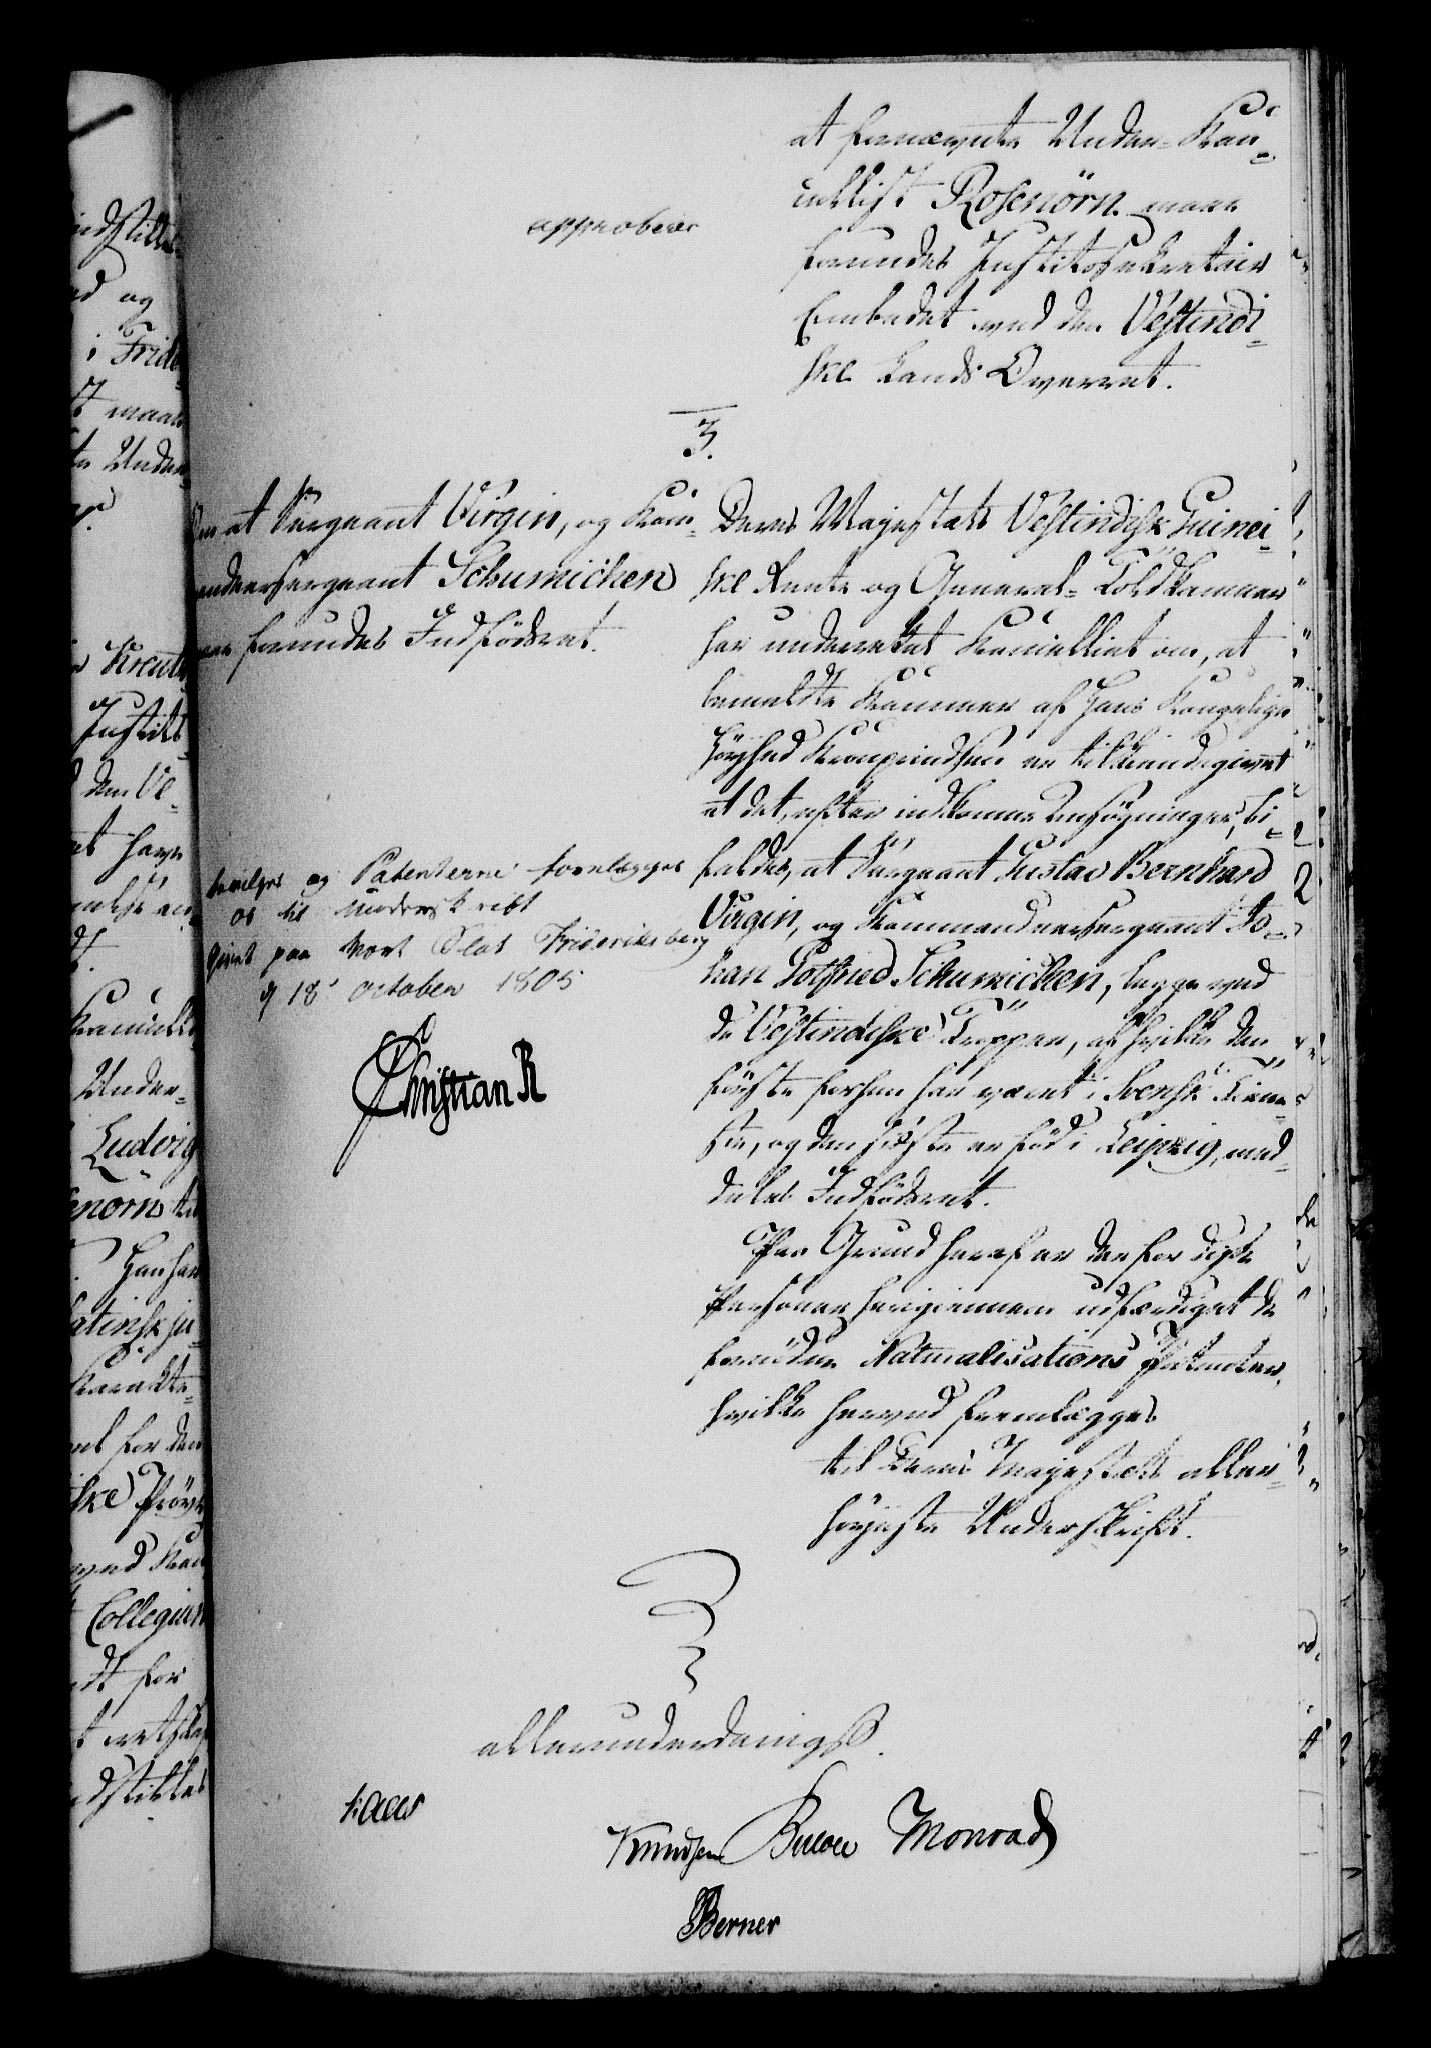 at fornævnte Under-Kan-
cellist Rosenörn maae
forundes Justitssekretair
Embedet ved den Vestindi-
ske Lands Overret.
approberes
3.
Om at Sergeant Virgin, og Kom-
mandeersergeant Schumichen
maae forundes Indfödsret.
Deres Majestæts Vestindisk Guinei-
ske Rente og General-Toldkammer
har underrettet Kancelliet om, at
bemeldte Kammer af Hans Kongelige
Höyhed Kronprindsen er tilkiendegivet
at det, efter indkomne Ansögninger, bi-
faldes, at Sergeant Gustav Bernhard
Virgin, og Kommandeersergeant Jo-
han Gotfried Schumichen, begge ved
de Vestindiske Tropper, af hvilke den
förste forhen har været i Svensk Tiene-
ste, og den sidste er föd i Leipzig, med-
deles Indfödsret.
Paa Grund heraf er der for disse
Personer herigiennem udfærdiget de
fornödne Naturalisations Patenter,
hvilke herved fremlægges
til Deres Majestæts aller-
höyeste Underskrift.
bevilges og Patenterne forelægges
os til underskrift
givet paa vort Slot Frideriksberg
d 18 october 1805
Christian R
allerunderdanigst.
Kaas
Knudsen Bülow Monrad
Berner